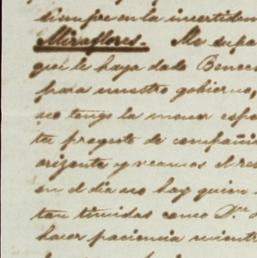 siempre en la incertidum
Miraflores. Me supo
que le haya dado Bene
para nuestro gobierno,
no tengo la menor espe
tu proyecto de compañia
orizonte y veamos el res
en el dia no hay quien
tan timidas como Dn
hacer paciencia mientr